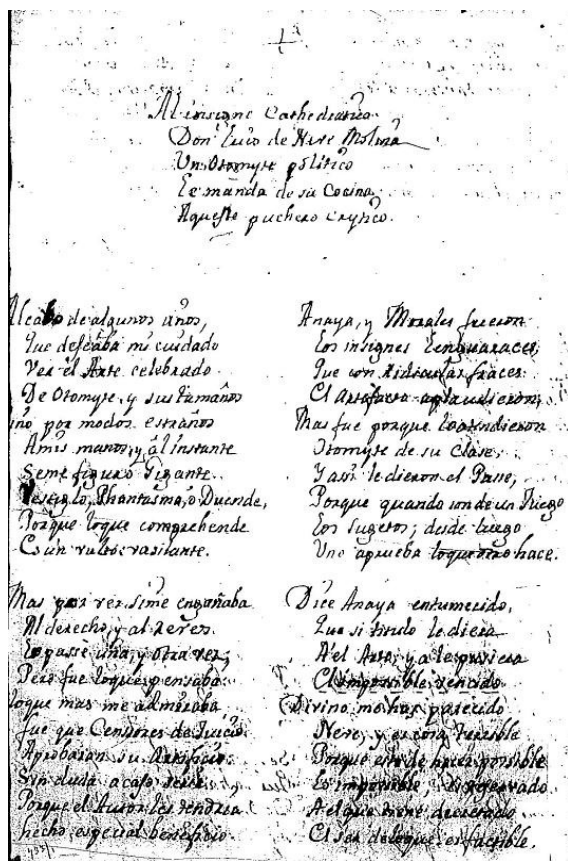 Al insigne Cathedratico
Don Luis de Neve Molina
Un Otomyte politico
Le manda de su Cocina
Aqueste puchero crytico.
Al cabo de algunos años,
Que deseaba mi cuidado
Ver el Arte celebrado
De Otomyte, y sus tamaños
vino por modos estraños
A mis manos, y al instante
Se me figuró Gigante
Vestiglo, Phantasma, ò Duende,
Porque loque comprehende
Es un vulto vasilante.
Mas por ver sime engañaba
Al derecho, y al reves
Lo passè una, y otra vez,
Pero fue loque pensaba
loque mas me admiraba
fue que Censores de Juicio
Aprobaran su Artificio
Sin duda acaso seria
Porque el Autor les tendria
hecho especial beneficio.
Anaya, y Morales fueron
Los insignes Lenguaraces,
Que con ridiculas fraces
El Artefacto aplaudieron,
Mas fue porque lo atendieron
Otomyte de su Clase,
Y assi le dieron el Passe,
Porque quando son de un Juego
Los sugetos, desde luego
Uno aprueba loque otro hace.
Dice Anaya entumecido,
Que si titulo le diera
A el Arte, y a le pusiera
El impossible vencido
Divino me has parecido
Neve, y es cosa terrible
Porque esto de hacer possible
Lo impossible,
A el que tiene
El ser de loque es factible.